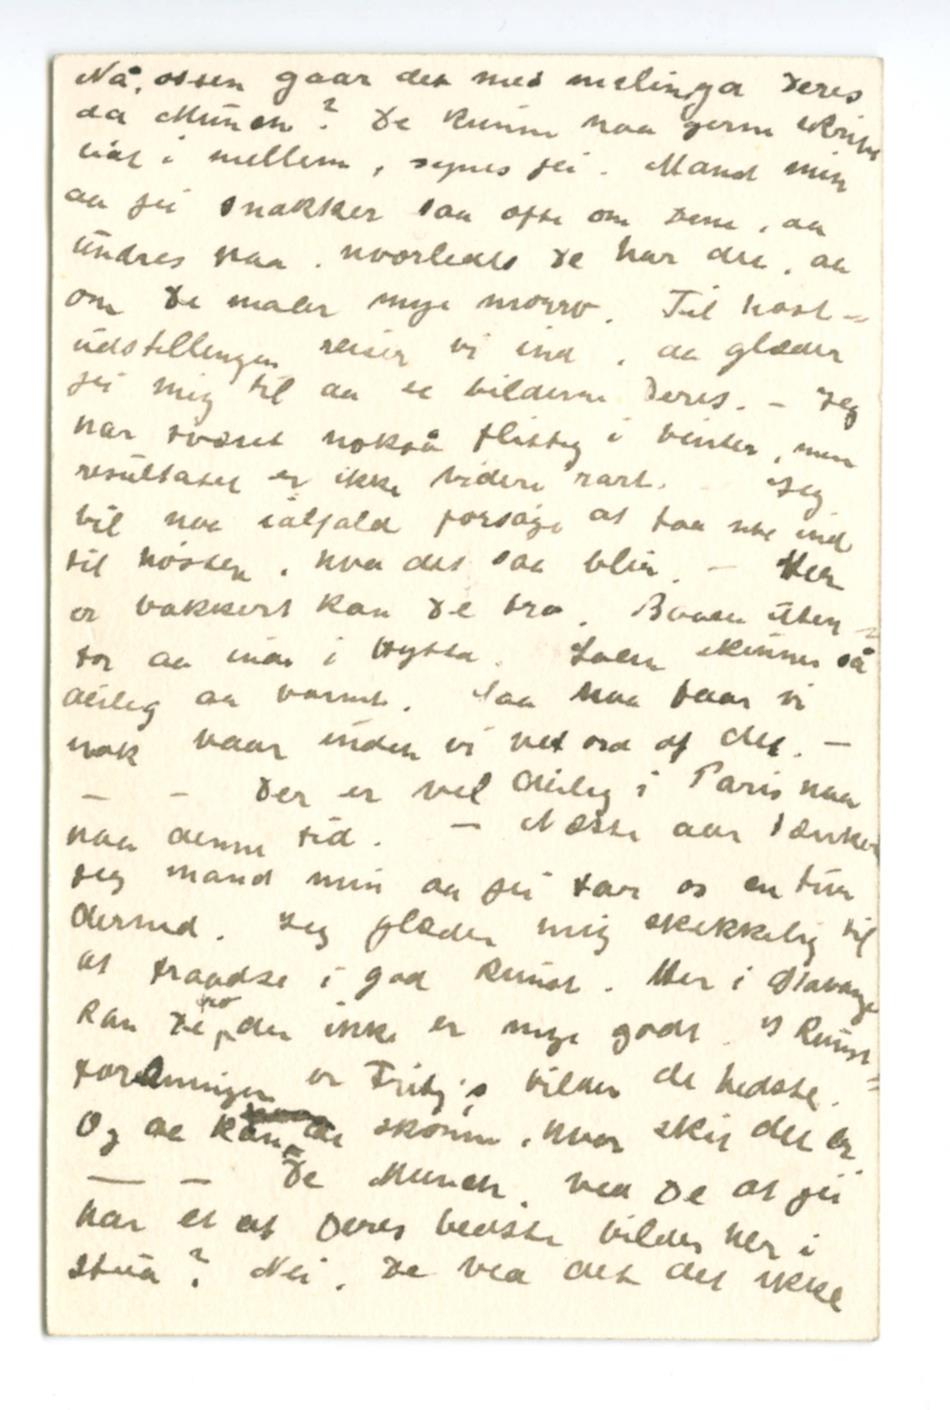 Nå, ossen gaar det med malinga Deres
da Munch? De kunne naa gerne skrive
lidt i mellem, synes jei. Mand min
aa jei snakker saa ofte om Dem, aa
undres naa, hvorledes De har det, aa
om De maler mye morro. Til høst-
udstillingen reiser vi ind, da glæder
jei mig til aa se bilderne Deres. – Jeg
har været nokså flittig i vinter, men
resultatet er ikke videre rart. – Jeg
vil naa ialfald forsøge at faa noe ind
til høsten, hva det saa blir. – Her
er vakkert kan De tro. Baaen uten-
for aa inde i Hytta. Solen skinner så
deilig aa varmt. Saa naa faar vi
nok vaar inden vi vet ord af det. –
– – Der er vel deilig i Paris naa
paa denne tid. – Næste aar tænker
jeg mand min aa jei tar os en tur
derned. Jeg glæder mig skikkelig til
at fraadse i god kunst. Her i Stavanger
kan De tro der ikke er mye godt. I Kunst-
foreningen er Fritz's bilder de bedste.
Og da kan De skønne, hvor skit det er
– – De Munch, ved De at jei
har et at Deres bedste bilder her i
stua? Nei, De ved det det ikke